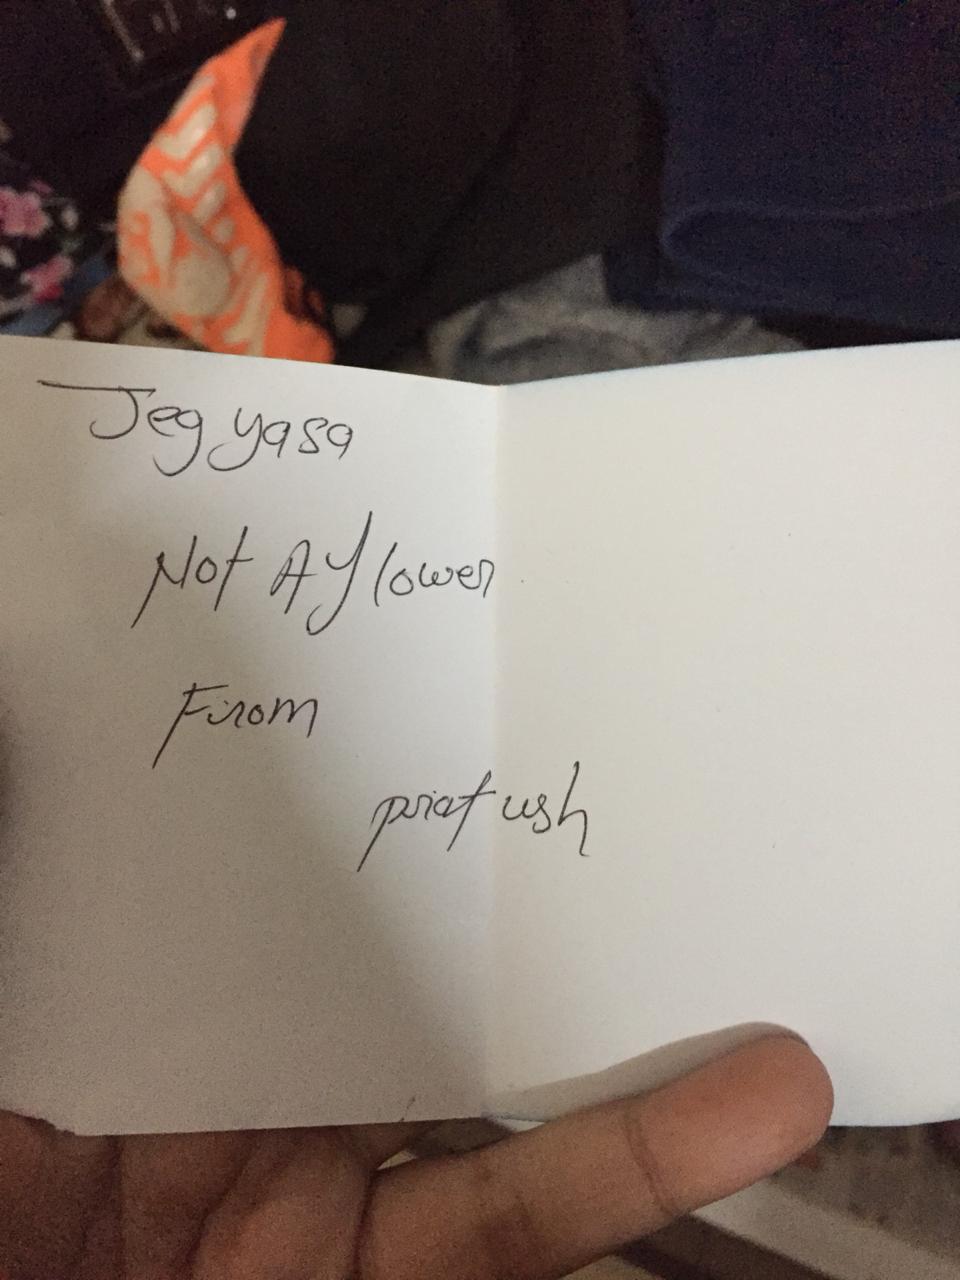 Jegyasa
Not A flower
From
pratush